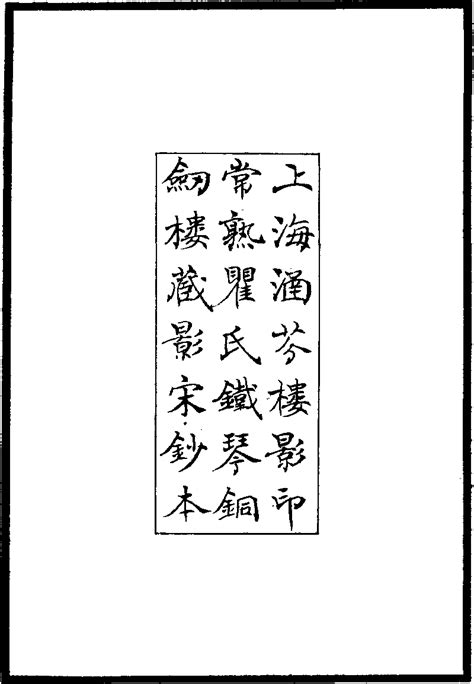 上海涵芬樓影印
常熟瞿氏鐵琴銅
劒樓藏影宋鈔本